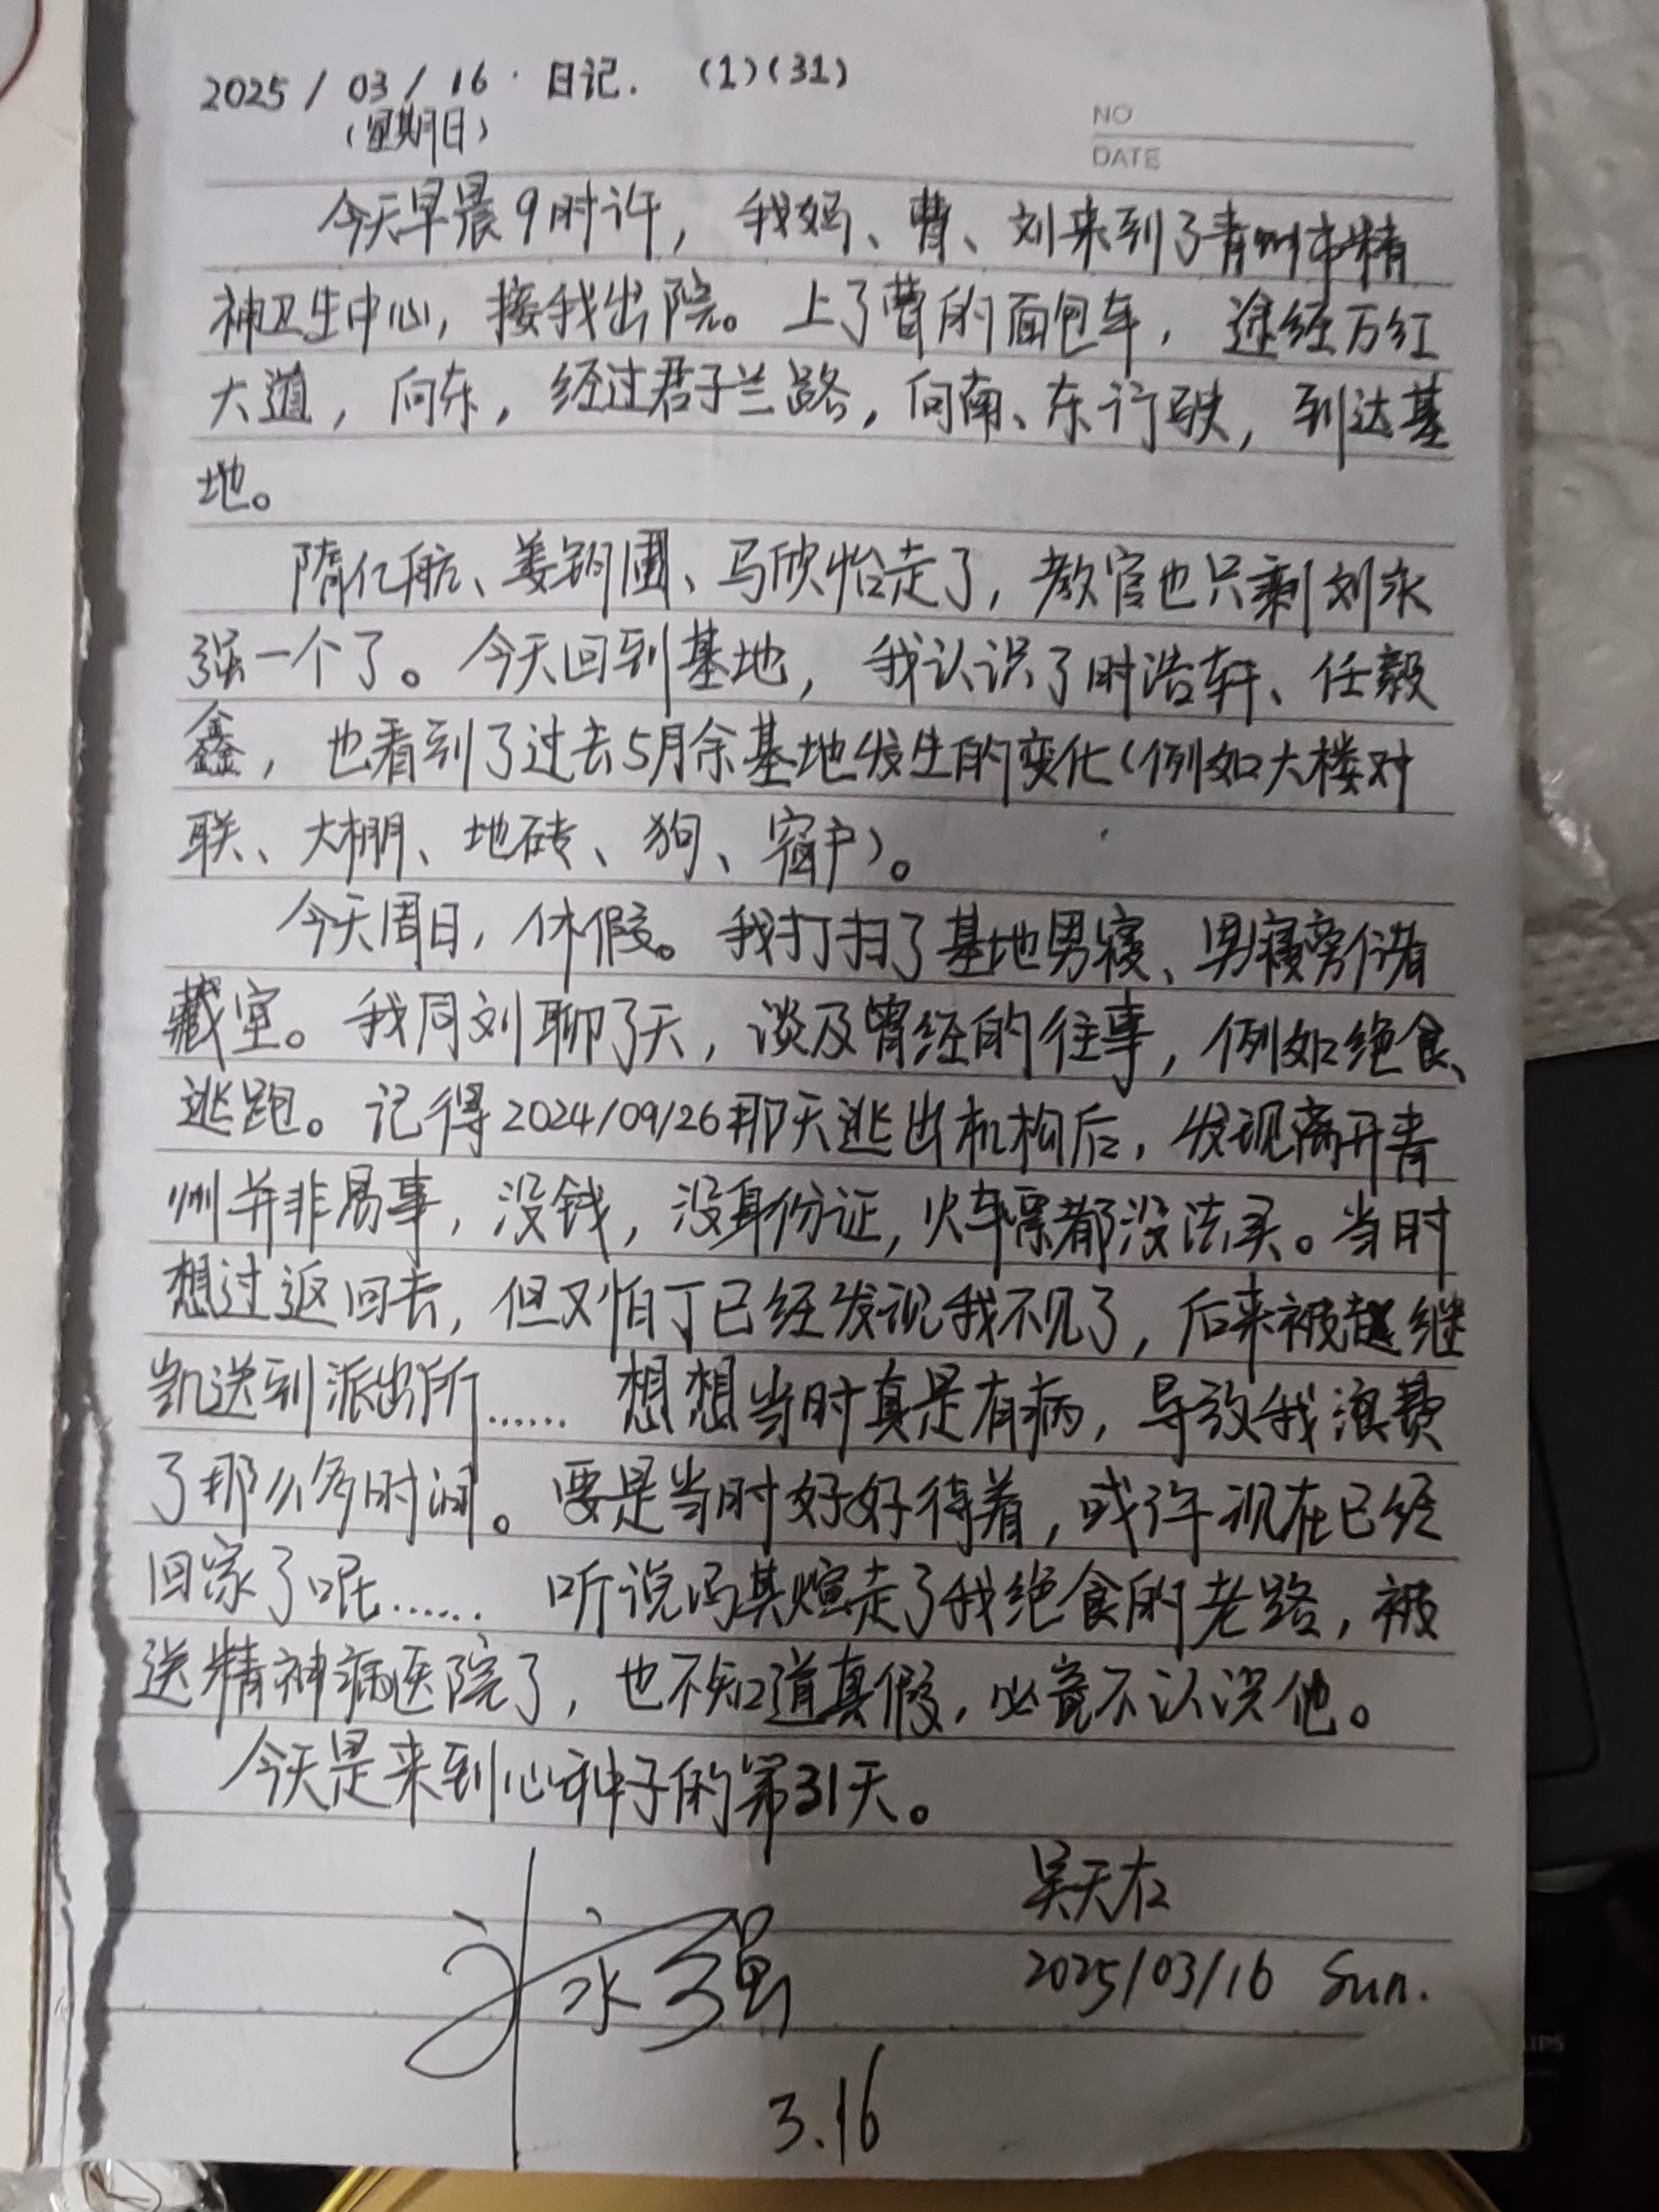 2025 / 03 / 16 · 日记. (1)(31)
(星期日)
NO
DATE
今天早晨9时许，我妈、曹、刘来到了青州市精
神卫生中心，接我出院。上了曹的面包车，途经万红
大道，向东，经过君子兰路，向南、东行驶，到达基
地。
隋亿航、姜钧圃、马欣怡走了，教官也只剩刘永
强一个了。今天回到基地，我认识了时浩轩、任毅
鑫，也看到了过去5月余基地发生的变化(例如大楼对
联、大棚、地砖、狗、窗户)。
今天周日，休假。我打扫了基地男寝、男寝旁储
藏室。我同刘聊了天，谈及曾经的往事，例如绝食、
逃跑。记得2024/09/26那天逃出机构后，发现离开青
州并非易事，没钱，没身份证，火车票都没法买。当时
想过返回去，但又怕丁已经发现我不见了，后来被赵继
凯送到派出所…… 想想当时真是有病，导致我浪费
了那么多时间。要是当时好好待着，或许现在已经
回家了呢…… 听说冯其煊走了我绝食的老路，被
送精神病医院了，也不知道真假，必竟不认识他。
今天是来到心种子的第31天。
吴天右
2025/03/16 Sun.
刘永强
3.16